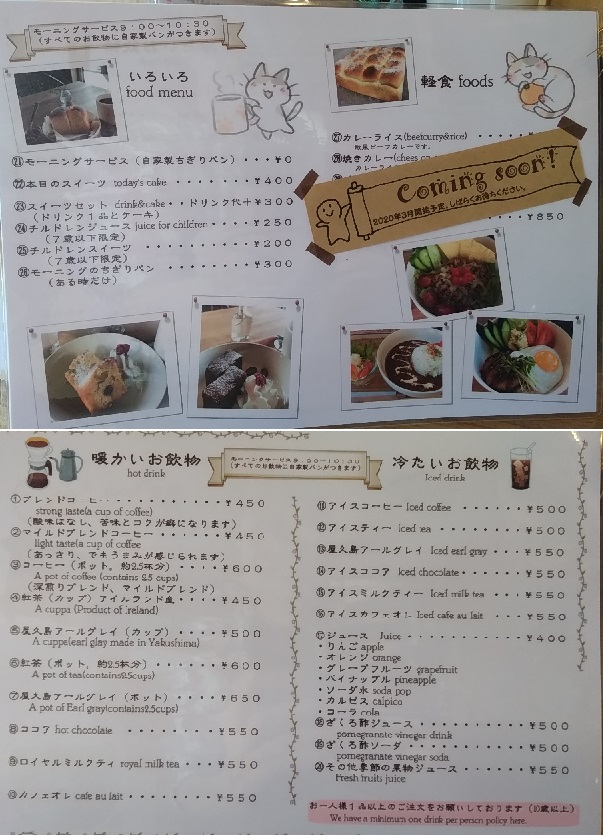 モーニングサービス9:00~10:30
(すべてのお飲物に自家製パンがつきます)
いろいろ
food menu
㉑モーニングサービス(自家製ちぎりパン)・・・¥0
㉒本日のスイーツ today's cake ・・・・・¥400
㉓スイーツセット drink&cake・・ドリンク代+¥300
(ドリンク1品とケーキ)
㉔チルドレンジュース juice for children・・・・¥250
(7歳以下限定)
㉕チルドレンスイーツ ・・・・・・・・¥200
(7歳以下限定)
㉖モーニングのちぎりパン ・・・・・・¥300
(ある時だけ)
軽食 foods
㉗カレーライス(beefcurry&rice)
欧風ビーフカレーです。
㉘焼きカレー
Coming soon!
2020年3月開始予定。しばらくお待ちください。
¥850
暖かいお飲物
hot drink
モーニングサービス9:00~10:30
(すべてのお飲物に自家製パンがつきます)
冷たいお飲物
Iced drink
①ブレンドコーヒー・・・・・・・・・・¥450
strong taste(a cup of coffee)
(酸味はなし、苦味とコクが癖になります)
②マイルドブレンドコーヒー ・・・・・・¥450
light taste(a cup of coffee
(あっさり、でもうまみが感じられます)
③コーヒー(ポット。約2.5杯分) ・・・・¥600
A pot of coffee (contains 2.5 cups)
(深煎りブレンド、マイルドブレンド)
④紅茶(カップ)アイルランド産・・・・¥450
A cuppa (Product of Ireland)
⑤屋久島アールグレイ(カップ) ・・・・¥500
A cuppe(earl glay made in Yakushima)
⑥紅茶(ポット, 約2.5杯分) ・・・・¥600
A pot of tea(contains2.5cups)
⑦屋久島アールグレイ(ポット) ・・・・¥650
A pot of Earl gray(contains2.5cups)
⑧ココア hot chocolate ・・・・・・・¥550
⑨ロイヤルミルクティ royal milk tea ・・・¥550
⑩カフェオレ cafe au lait ・・・・・・・¥550
⑪アイスコーヒー Iced coffee ・・・・・¥500
⑫アイスティー iced tea ・・・・・・・¥500
⑬屋久島アールグレイ Iced earl gray ・・・¥550
⑭アイスココア Iced chocolate・・・・・¥550
⑮アイスミルクティー Iced milk tea ・・・¥550
⑯アイスカフェオレ Iced cafe au lait ・・・¥550
⑰ジュース Juice ・・・・・・・・・・¥400
・りんご apple
・オレンジ orange
・グレープフルーツ grapefruit
・パイナップル pineapple
・ソーダ水 soda pop
・カルピス calpico
・コーラ cola
⑱ざくろ酢ジュース ・・・・・・・・・¥500
pomegranate vinegar drink
⑲ざくろ酢ソーダ ・・・・・・・・・・¥500
pomegranate vinegar soda
⑳その他季節の果物ジュース ・・・・・¥550
Fresh fruits juice
お一人様1品以上のご注文をお願いしております(10歳以上)
We have a minimum one drink per person policy here.